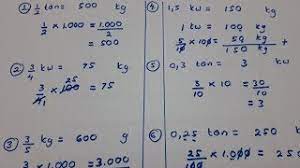 ① 1/2 ton = 500 kg
1/2 x 1.000 = 1.000/2
= 500
② 3/4 kw = 75 kg
3/4 x 100 25 = 75
③ 3/5 kg = 600 g
3/5 x 1.000 = 3.000
④ 1,5 kw = 150 kg
1 kw = 100 kg
5/10 x 100 = 50 kg +
150 kg
⑤ 0,3 ton = 3 kw
3/10 x 10 = 30/10
= 3
⑥ 0,25 ton = 250 k
25 x 1.000 = 250